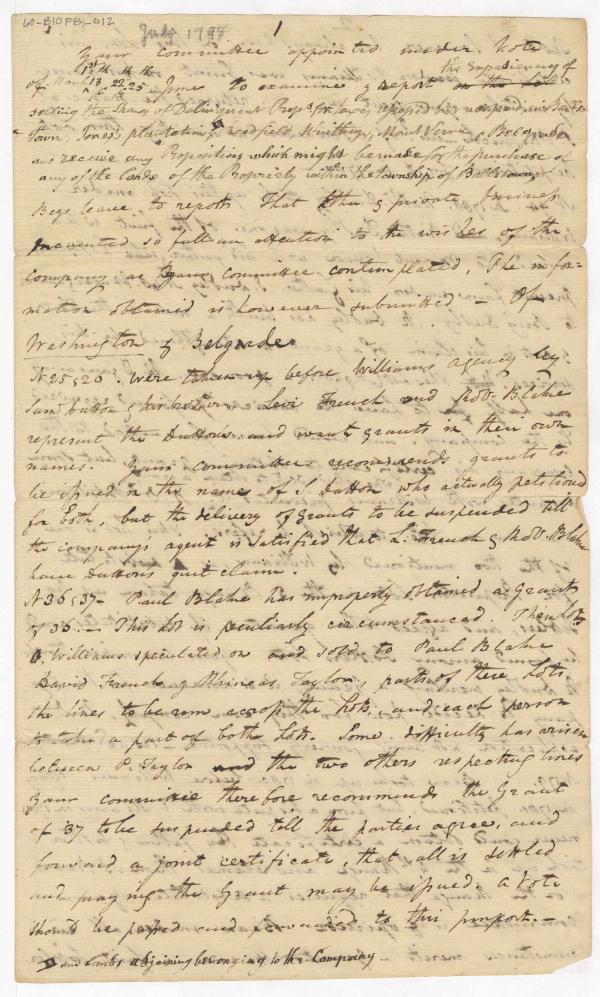 60-B10FB1-012
July 1798
1
Your committee appointed under Vote
of 13th 22th 25th June to examine & report the Expediency of
selling the Shares of Delinquent Proprs for taxes
town, Jones plantation, Readfield, Winthrop, Mount Vernon, Belgrade
and receive any Propositions which might be made for the purchase of
any of the Lands of the Propriety within the township of
Begs leave to report. That other & private business
prevented so full an attention to the wishes of the
company as Your committee contemplated. The infor=
mation obtained is however submitted — Of
Washington & Belgrade
N 25 & 26. were taken up before Williams agency by
Saml dutton & his brother Levi French and Robt. Blake
represent the Duttons and want grants in their own
names. Your committee recommends grants to
be issued in the name of S Dutton who actually petitioned
for both, but the delivery of grants to be suspended till
the company's agent is satisfied that L. French & Robt. Blake
have Duttons quit claim.
N 36 & 37 — Paul Blake has improperly obtained a Grant
of 36. — This Lot is peculiarly circumstanced. These lots
B. Williams speculated on and sold to Paul Blake
David French & Phineas Taylor, parts of these Lots
the lines to be run across the Lots, and each person
to take a part of both Lots. Some difficulty has arisen
between P. Taylor and the two others respecting lines
Your committee therefore recommends the Grant
of 37 to be suspended till the parties agree, and
forward a joint certificate, that all is settled
and praying the Grant may be issued. a Vote
should be passed and forwarded to this purport. —
and Lands adjoining belonging to the Company